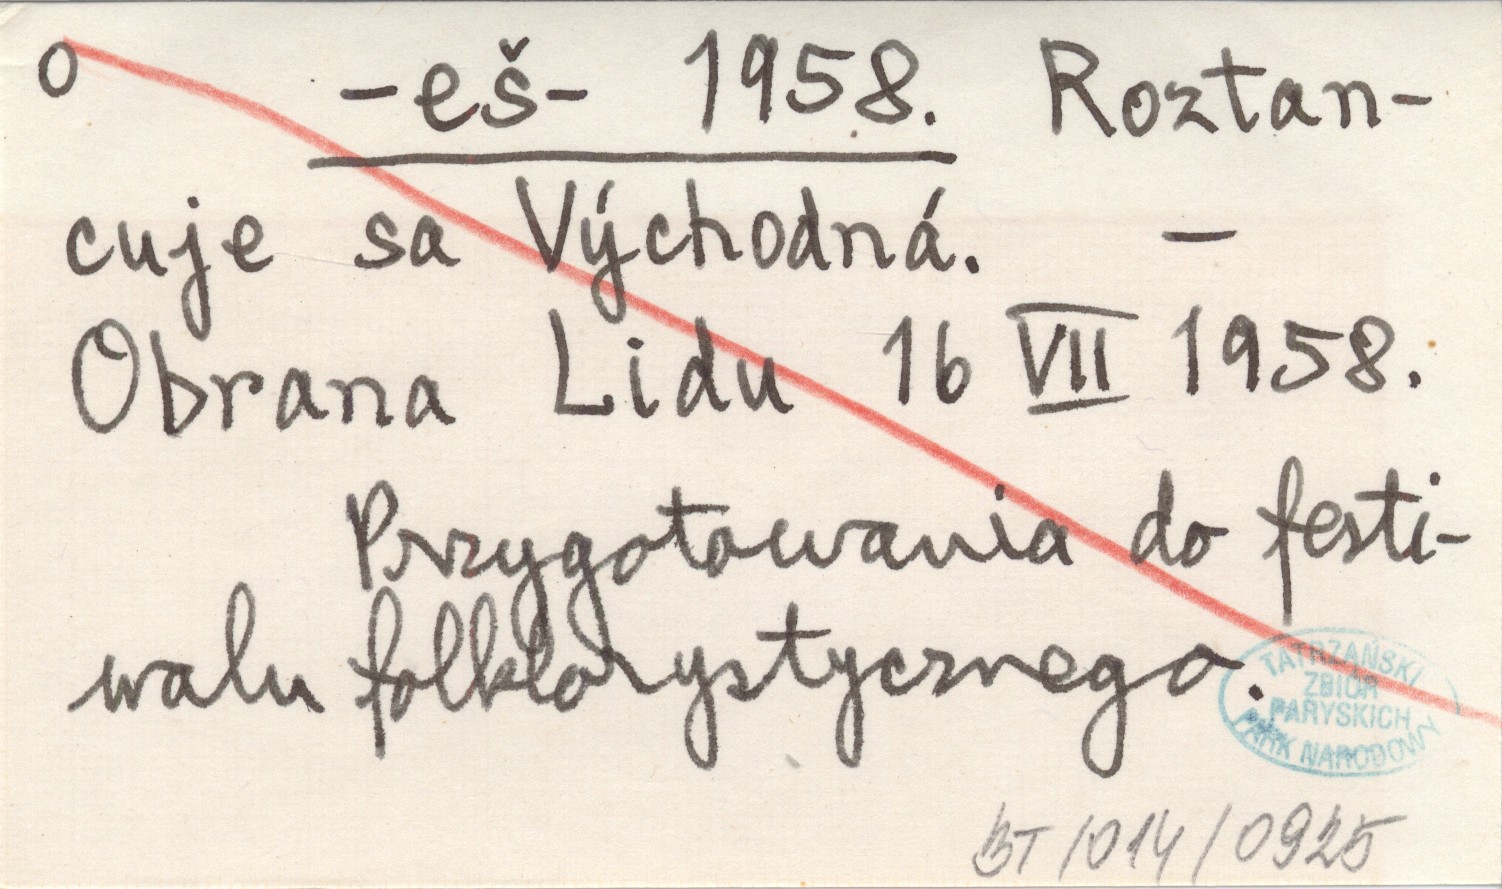 o -eš- 1958. Roztan-
cuje sa Východná. –
Obrana Lidu 16 VII 1958.
Przygotowania do festi-
walu folklorystycznego.
TATRZAŃSKI
ZBIÓR
PARYSKICH
PARK NARODOWY
BT/014/0925